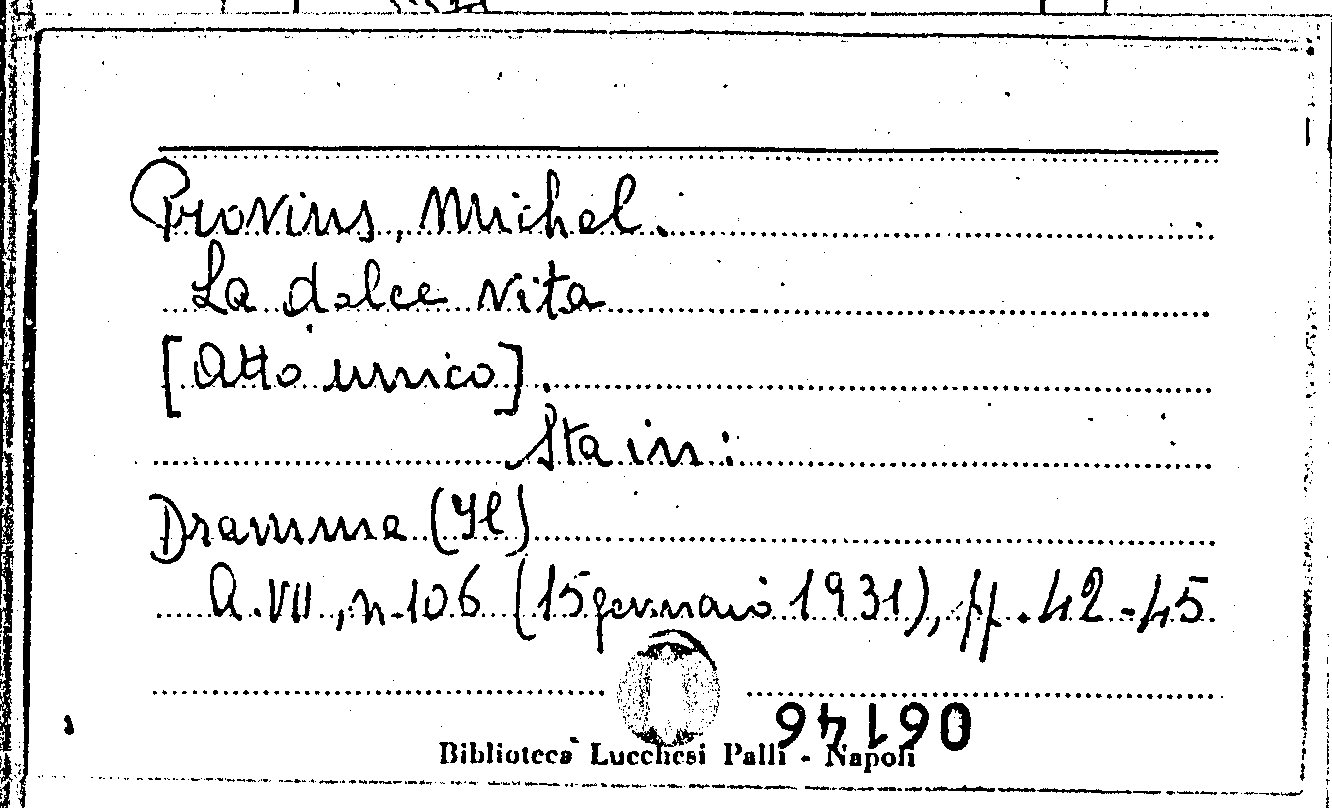 Provins, Michel.
La dolce vita
[Atto unico].
Sta in:
Dramma (Il)
A. VII, n. 106 (15 gennaio 1931), pp. 42-45
06146
Biblioteca Lucchesi Palli - Napoli